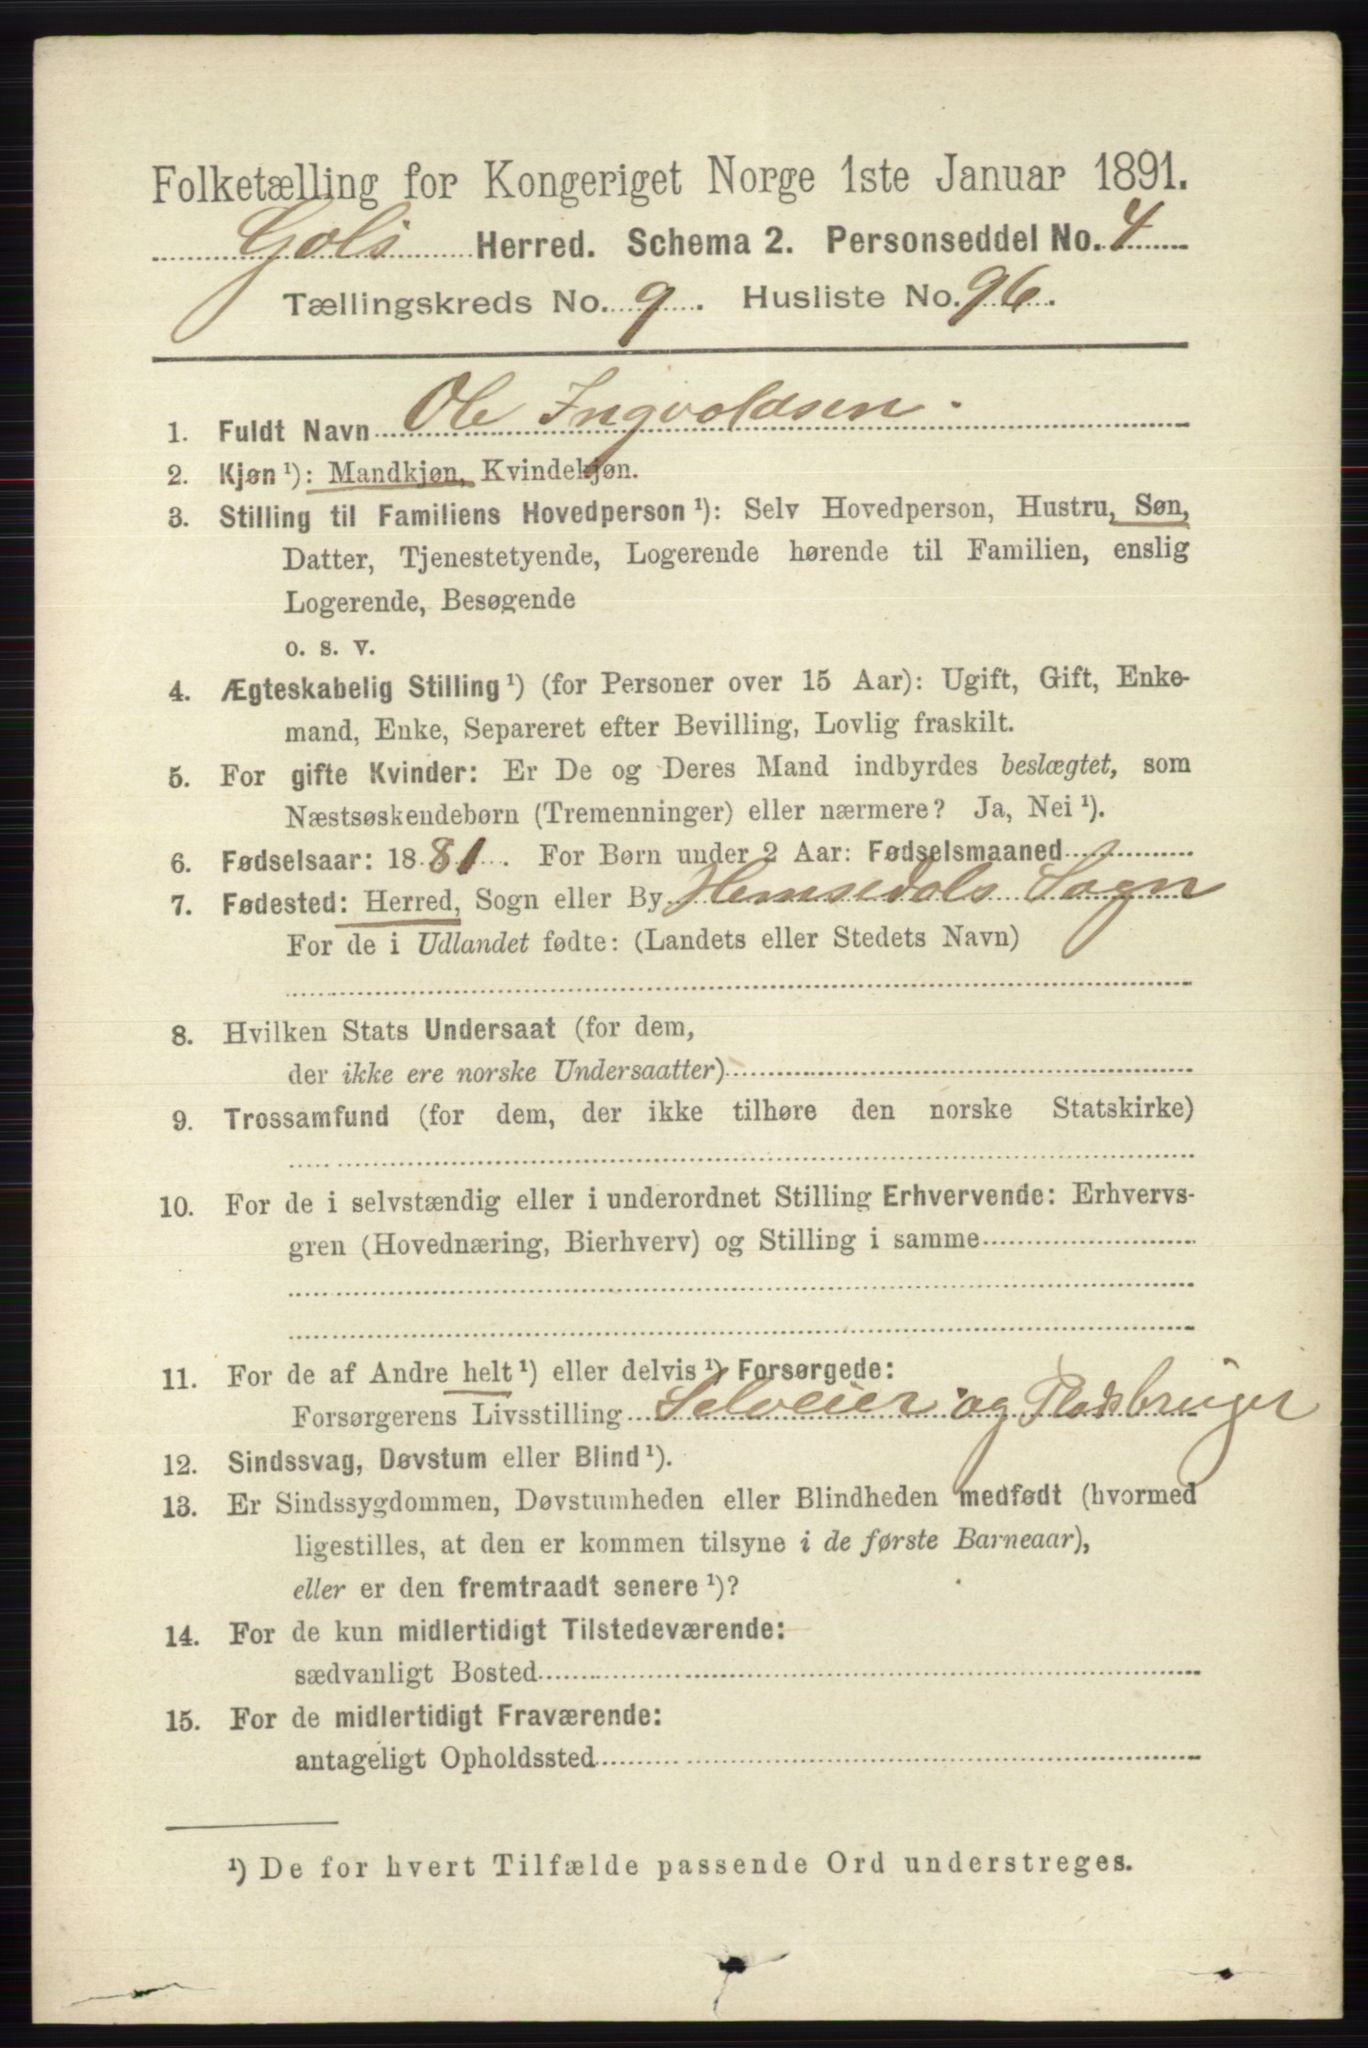 Folketælling for Kongeriget Norge 1ste Januar 1891.
Gols Herred. Schema 2. Personseddel No. 4
Tællingskreds No. 9. Husliste No. 96.
1. Fuldt Navn Ole Ingvoldsen.
2. Kjøn ¹): Mandkjøn, Kvindekjøn.
3. Stilling til Familiens Hovedperson ¹): Selv Hovedperson, Hustru, Søn,
Datter, Tjenestetyende, Logerende hørende til Familien, enslig
Logerende, Besøgende
o. s. v.
4. Ægteskabelig Stilling ¹) (for Personer over 15 Aar): Ugift, Gift, Enke-
mand, Enke, Separeret efter Bevilling, Lovlig fraskilt.
5. For gifte Kvinder: Er De og Deres Mand indbyrdes beslægtet, som
Næstsøskendebørn (Tremenninger) eller nærmere? Ja, Nei ¹).
6. Fødselsaar: 1881. For Børn under 2 Aar: Fødselsmaaned
7. Fødested: Herred, Sogn eller By Hemsedals Sogn
For de i Udlandet fødte: (Landets eller Stedets Navn)
8. Hvilken Stats Undersaat (for dem,
der ikke ere norske Undersaatter)
9. Trossamfund (for dem, der ikke tilhøre den norske Statskirke)
10. For de i selvstændig eller i underordnet Stilling Erhvervende: Erhvervs-
gren (Hovednæring, Bierhverv) og Stilling i samme
11. For de af Andre helt ¹) eller delvis ¹) Forsørgede:
Forsørgerens Livsstilling Selveier og Pladsbruger
12. Sindssvag, Døvstum eller Blind ¹).
13. Er Sindssygdommen, Døvstumheden eller Blindheden medfødt (hvormed
ligestilles, at den er kommen tilsyne i de første Barneaar),
eller er den fremtraadt senere ¹)?
14. For de kun midlertidigt Tilstedeværende:
sædvanligt Bosted
15. For de midlertidigt Fraværende:
antageligt Opholdssted
¹) De for hvert Tilfælde passende Ord understreges.